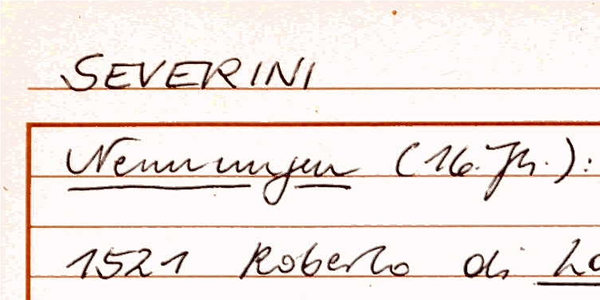 SEVERINI
Nennungen (16. Jh.):
1521 Roberto di